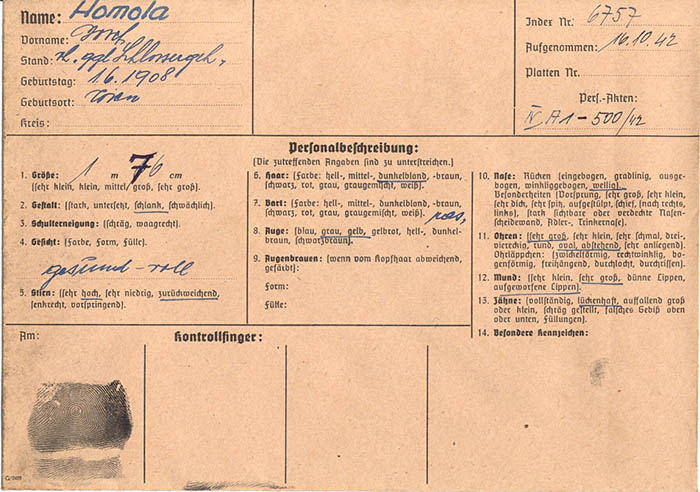 Name: Homola
Vorname: Josef
Stand:
Geburtstag: 1.6.1908
Geburtsort: Wien
Kreis:
Index Nr. 6757
Aufgenommen: 16.10.42
Platten Nr.
Pers.-Akten:
IV A1 - 500/42
Personalbeschreibung:
(Die zutreffenden Angaben sind zu unterstreichen.)
1. Größe: 1 m 76 cm
(sehr klein, klein, mittel, groß, sehr groß).
2. Gestalt: (stark, untersetzt, schlank, schwächlich).
3. Schulterneigung: (schräg, waagrecht).
4. Gesicht: (Farbe, Form, Fülle).
gesund - voll
5. Stirn: (sehr hoch, sehr niedrig, zurückweichend,
senkrecht, vorspringend).
6. Haar: (Farbe: hell-, mittel-, dunkelblond, -braun,
schwarz, rot, grau, graugemischt, weiß).
7. Bart: (Farbe: hell-, mittel-, dunkelblond, -braun,
schwarz, rot, grau, graugemischt, weiß). ras,
8. Auge: (blau, grau, gelb, gelbrot, hell-, dunkel-
braun, schwarzbraun).
9. Augenbrauen: (wenn vom Kopfhaar abweichend,
gefärbt):
Form:
Fülle:
10. Nase: Rücken (eingebogen, gradlinig, ausge-
bogen, winkliggebogen, wellig).
Vorsprung (sehr groß, sehr klein,
sehr dick, sehr spitz, aufgestülpt, schief, (nach rechts,
links), stark sichtbare oder verdeckte Nasen-
scheidewand, Adler-, Trinkernase).
11. Ohren: (sehr groß, sehr klein, sehr schmal, drei-,
viereckig, rund, oval, abstehend, sehr anliegend).
Ohrläppchen: (zwickelförmig, rechtwinklig, bo-
genförmig, freihängend, durchlocht, durchrissen).
12. Mund: (sehr klein, sehr groß, dünne Lippen,
aufgeworfene Lippen).
13. Zähne: (vollständig, lückenhaft, auffallend groß
oder klein, schräg gestellt, falsches Gebiß oben
oder unten, Füllungen).
14. Besondere Kennzeichen:
Am:
Kontrollfinger: